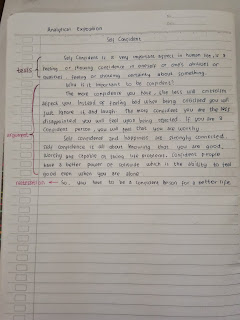 Analytical Exposition
Self Confident
Self Confident is a very important aspect in human life, is a
feeling or showing confidence in oneself or one's abilities or
qualities. feeling or showing certainty about something.
thesis
Why it is important to be confident?
The more confidence you have, the less will criticism
affect you. Instead of feeling bad when being criticized you will
just ignore it and laugh. The more confident you are the less
disappointed you will feel upon being rejected. If you are a
confident person, you will feel that you are worthy
argument
Self confidence and happiness are strongly connected.
Self confidence is all about knowing that you are good,
worthy and capable of facing life problems. confident people
have a better power of solitude which is the ability to feel
good even when you are alone
reiteration So, you have to be a confident person for a better life.